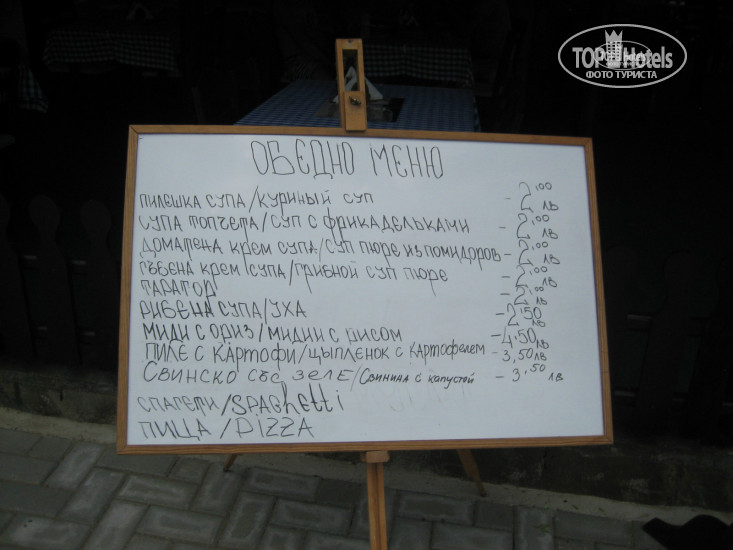 TOP Hotels
ФОТО ТУРИСТА
ОБЕДНО МЕНЮ
ПИЛЕШКА СУПА/КУРИНЫЙ СУП - 2,00 ЛВ
СУПА ТОПЧЕТА/СУП С ФРИКАДЕЛЬКАМИ - 2,00 ЛВ
ДОМАТЕНА КРЕМ СУПА/СУП ПЮРЕ ИЗ ПОМИДОРОВ - 2,00 ЛВ
ГЪБЕНА КРЕМ СУПА/ГРИБНОЙ СУП ПЮРЕ - 2,00 ЛВ
ТАРАТОР - 2,00 ЛВ
РИБЕНА СУПА/УХА - 2,50 ЛВ
МИДИ С ОРИЗ/МИДИИ С РИСОМ - 4,50 ЛВ
ПИЛЕ С КАРТОФИ/ЦЫПЛЕНОК С КАРТОФЕЛЕМ - 3,50 ЛВ
СВИНСКО СЪС ЗЕЛЕ/СВИНИНА С КАПУСТОЙ - 3,50 ЛВ
СПАГЕТИ/SPAGHETTI
ПИЦА/PIZZA